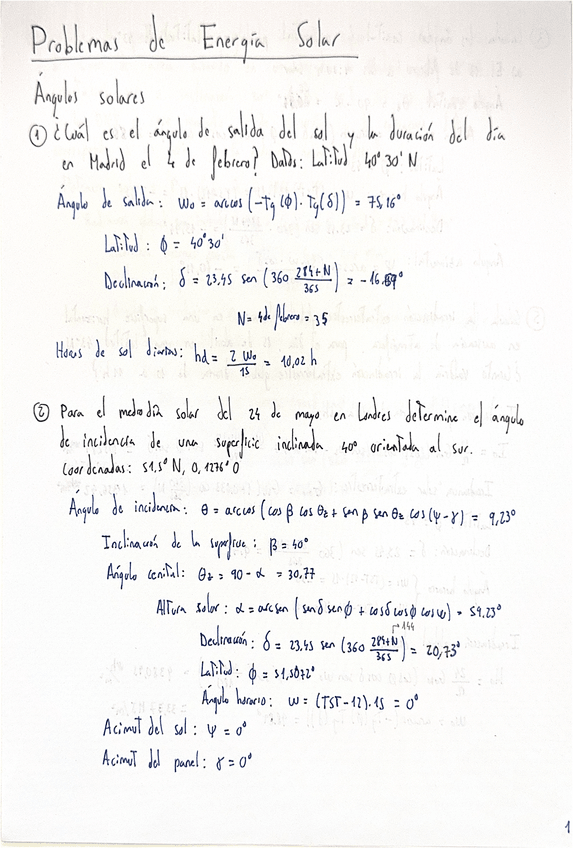 Problemas de Energía Solar
Ángulos solares
① ¿Cuál es el ángulo de salida del sol y la duración del día
en Madrid el 4 de febrero? Datos: Latitud 40°30' N
Ángulo de salida: ω₀ = arccos (-Tg(ϕ)·Tg(δ)) = 75,16°
Latitud: ϕ = 40°30'
Declinación: δ = 23,45 sen (360 (284+N)/365) = -16. °
N = 4 de febrero = 35
Horas de sol diarias: hd = 2 ω₀/15 = 10,02 h
② Para el mediodía solar del 24 de mayo en Londres determine el ángulo
de incidencia de una superficie inclinada 40° orientada al sur.
Coordenadas: 51,5° N, 0,1276° O
Ángulo de incidencia: θ = arccos (cos β cos θz + sen β sen θz cos (ψ - γ) = 9,23°
Inclinación de la superficie: β = 40°
Ángulo cenital: θz = 90 - α = 30,77
Altura solar: α = arcsen (senδ senϕ + cosδ cosϕ cosω) = 59.23°
144
Declinación: δ = 23,45 sen (360 (284+N)/365) = 20,73°
Latitud: ϕ = 51,5072°
Ángulo horario: ω = (TST-12)·15 = 0°
Acimut del sol: ψ = 0°
Acimut del panel: γ = 0°
1